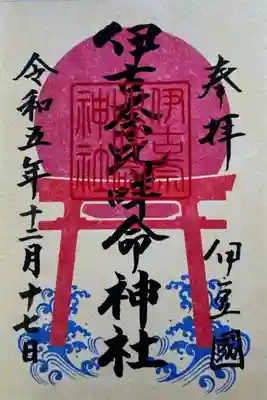 奉拝
伊豆國
伊古奈比咩命神社
伊古奈
神社
令和五年十二月十七日